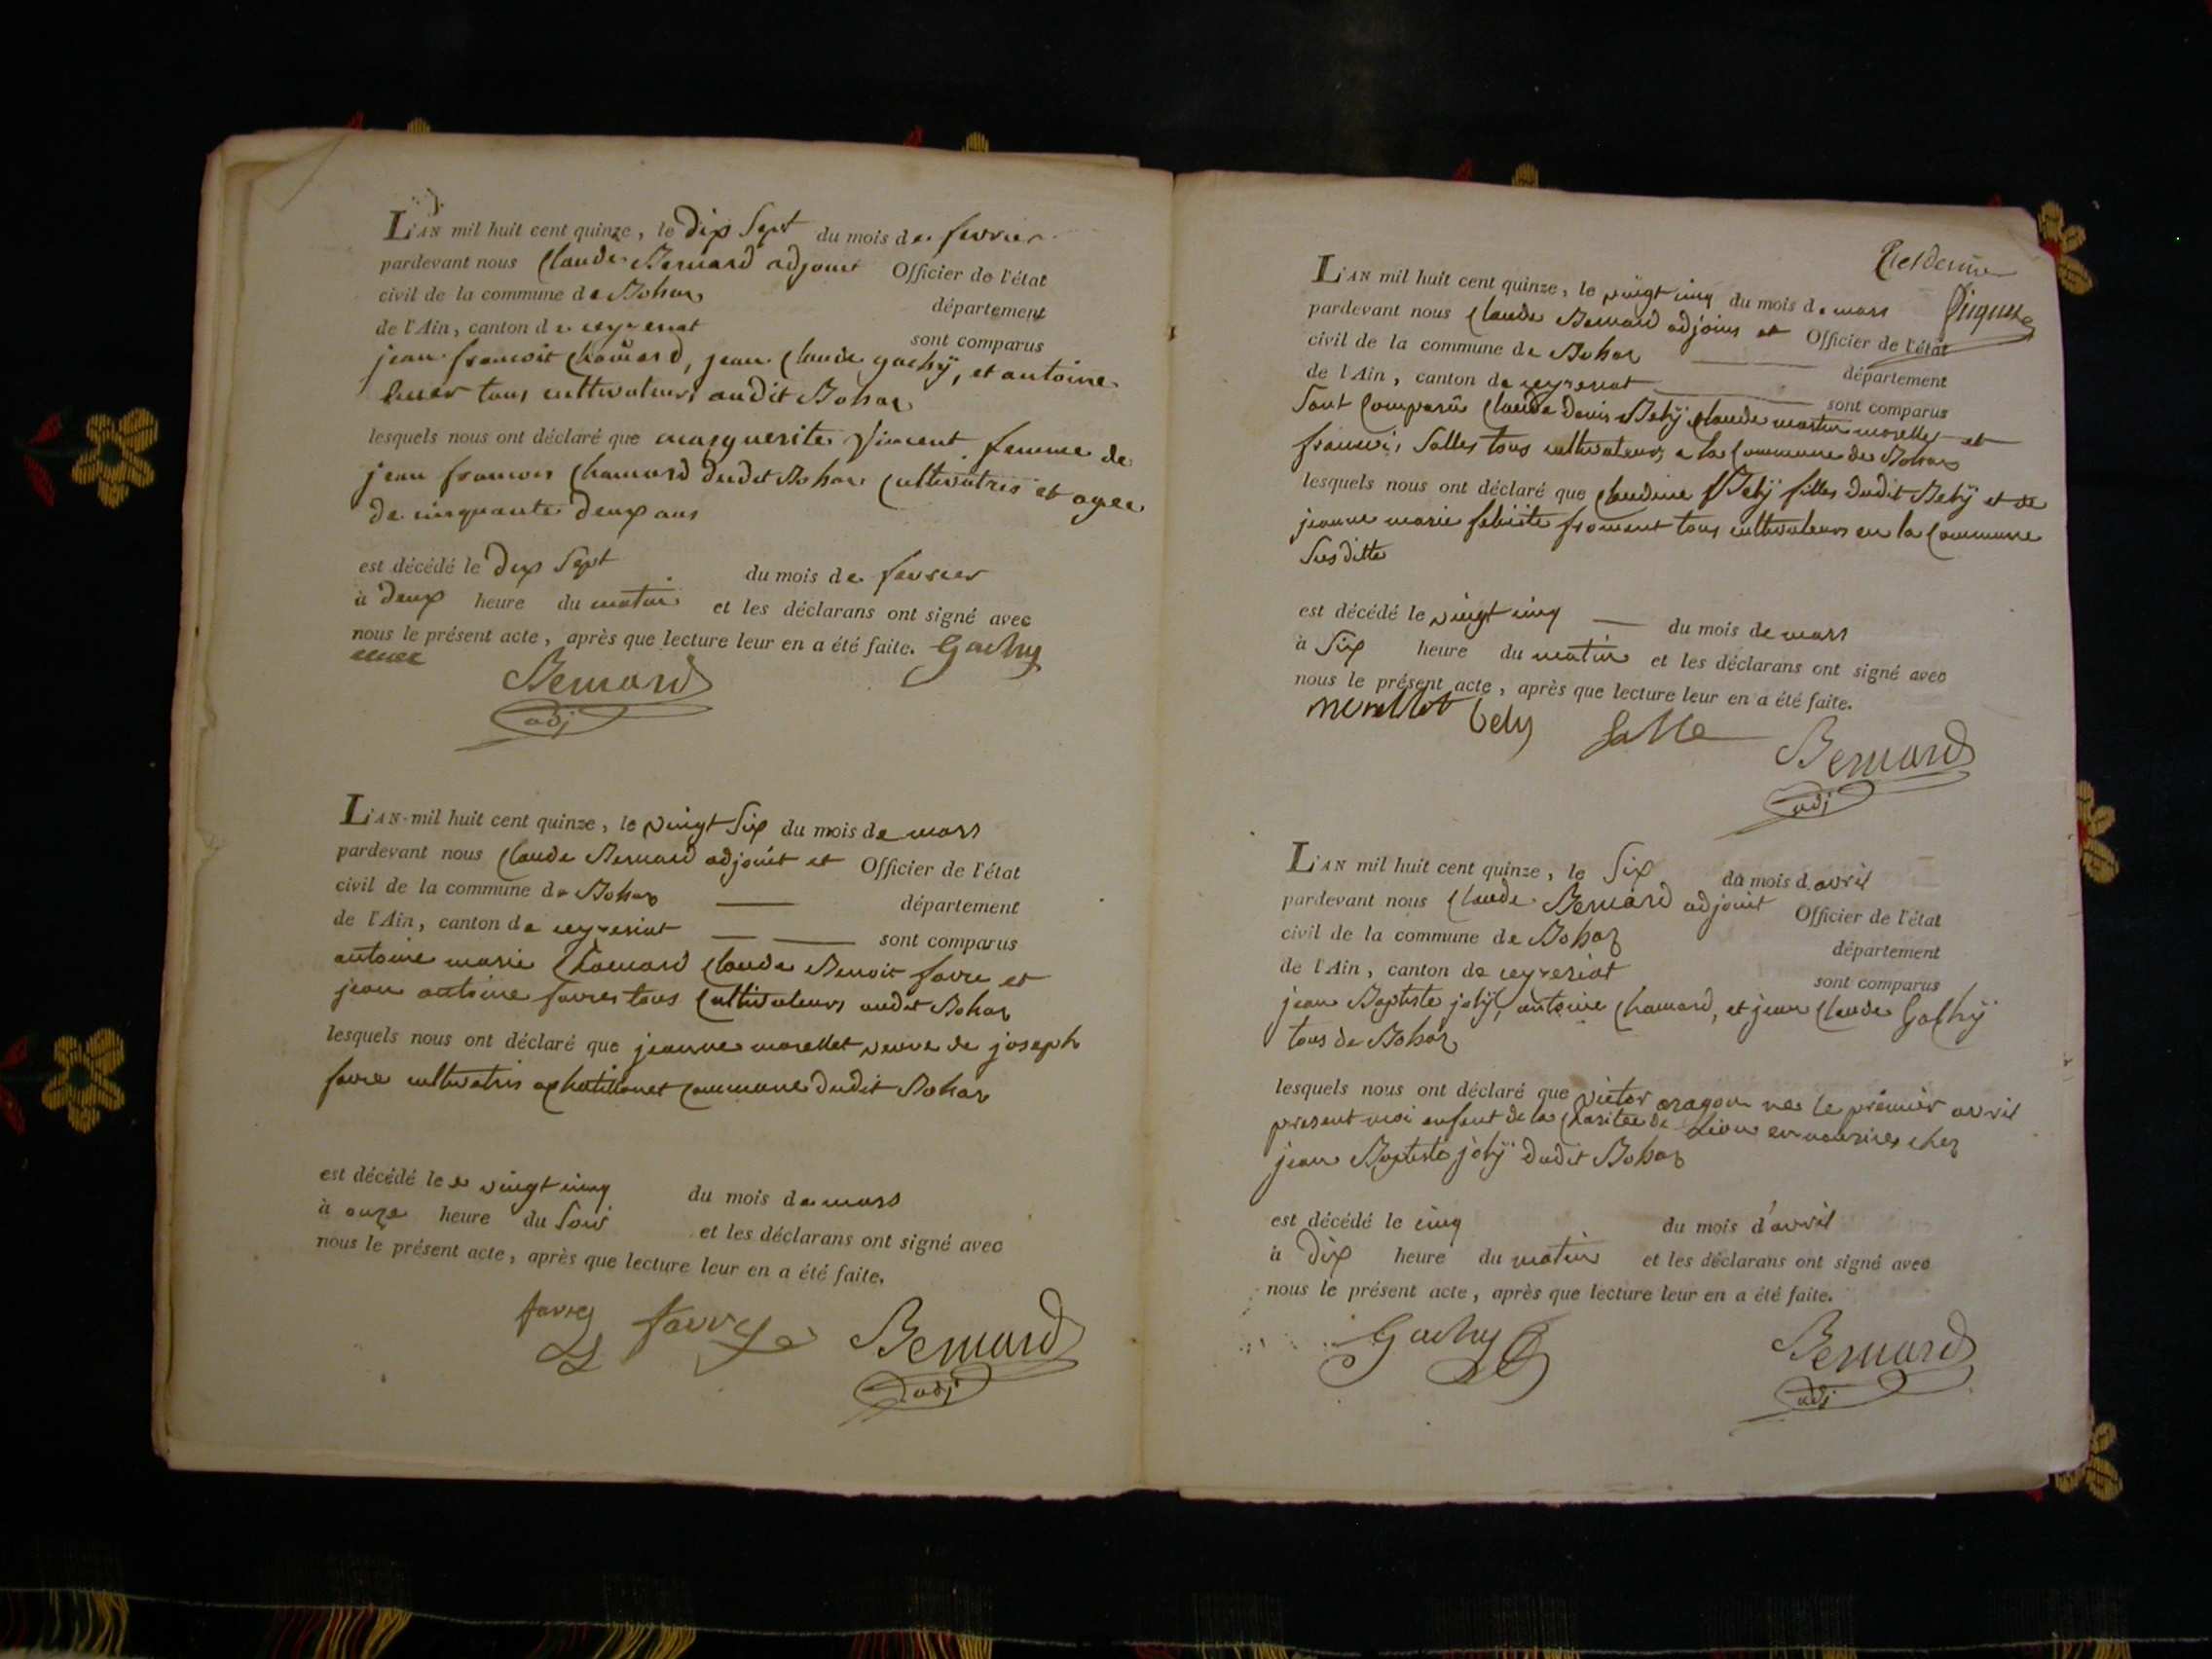 L'AN mil huit cent quinze, le dix Sept du mois de fevrier
pardevant nous Claude Bernard adjoint Officier de l'état
civil de la commune de Bohas département
de l'Ain, canton de ceyzeriat sont comparus
jean francois Chanard, jean Claude gachÿ, et antoine
tous cultivateurs audit Bohas
lesquels nous ont déclaré que marguerite Vincent femme de
jean francois Chanard dudit Bohas Cultivatris et agee
de cinquante deux ans
est décédé le dix Sept du mois de fevrier
à deux heure du matin et les déclarans ont signé avec
nous le présent acte, après que lecture leur en a été faite. Gachy
Bernard
adj
L'AN mil huit cent quinze, le vingt Six du mois de mars
pardevant nous Claude Bernard adjoint et Officier de l'état
civil de la commune de Bohas département
de l'Ain, canton de ceyzeriat sont comparus
antoine marie Chanard Claude Benoit favre et
jean antoine favre tous Cultivateurs audit Bohas
lesquels nous ont déclaré que jeanne morellet veuve de joseph
favre cultivatris a chatillonet Commune dudit Bohas
est décédé le vingt cinq du mois de mars
à onze heure du Soir et les déclarans ont signé avec
nous le présent acte, après que lecture leur en a été faite.
favre favre Bernard
adj
L'AN mil huit cent quinze, le vingt cinq du mois de mars
pardevant nous Claude Bernard adjoint et Officier de l'état
civil de la commune de Bohas département
de l'Ain, canton de ceyzeriat sont comparus
Sont Comparû Claude denis Betÿ Claude martin morellet et
francois Salles tous cultivateurs a la Commune de Bohas
lesquels nous ont déclaré que Claudine Betÿ filles dudit Betÿ et de
jeanne marie felicite froment tous cultivateurs en la Commune
Susditte
est décédé le vingt cinq du mois de mars
à Six heure du matin et les déclarans ont signé avec
nous le présent acte, après que lecture leur en a été faite.
morellet bety Salle Bernard
adj
L'AN mil huit cent quinze, le Six du mois d'avril
pardevant nous Claude Bernard adjoint Officier de l'état
civil de la commune de Bohas département
de l'Ain, canton de ceyzeriat sont comparus
jean Baptiste jolÿ, antoine Chanard, et jean Claude Gachÿ
tous de Bohas
lesquels nous ont déclaré que victor aragon ne le premier avril
present moi enfent de la Charitée de Lion en nourices chez
jean Baptiste jolÿ dudit Bohas
est décédé le cinq du mois d'avril
à dix heure du matin et les déclarans ont signé avec
nous le présent acte, après que lecture leur en a été faite.
Gachy Bernard
adj